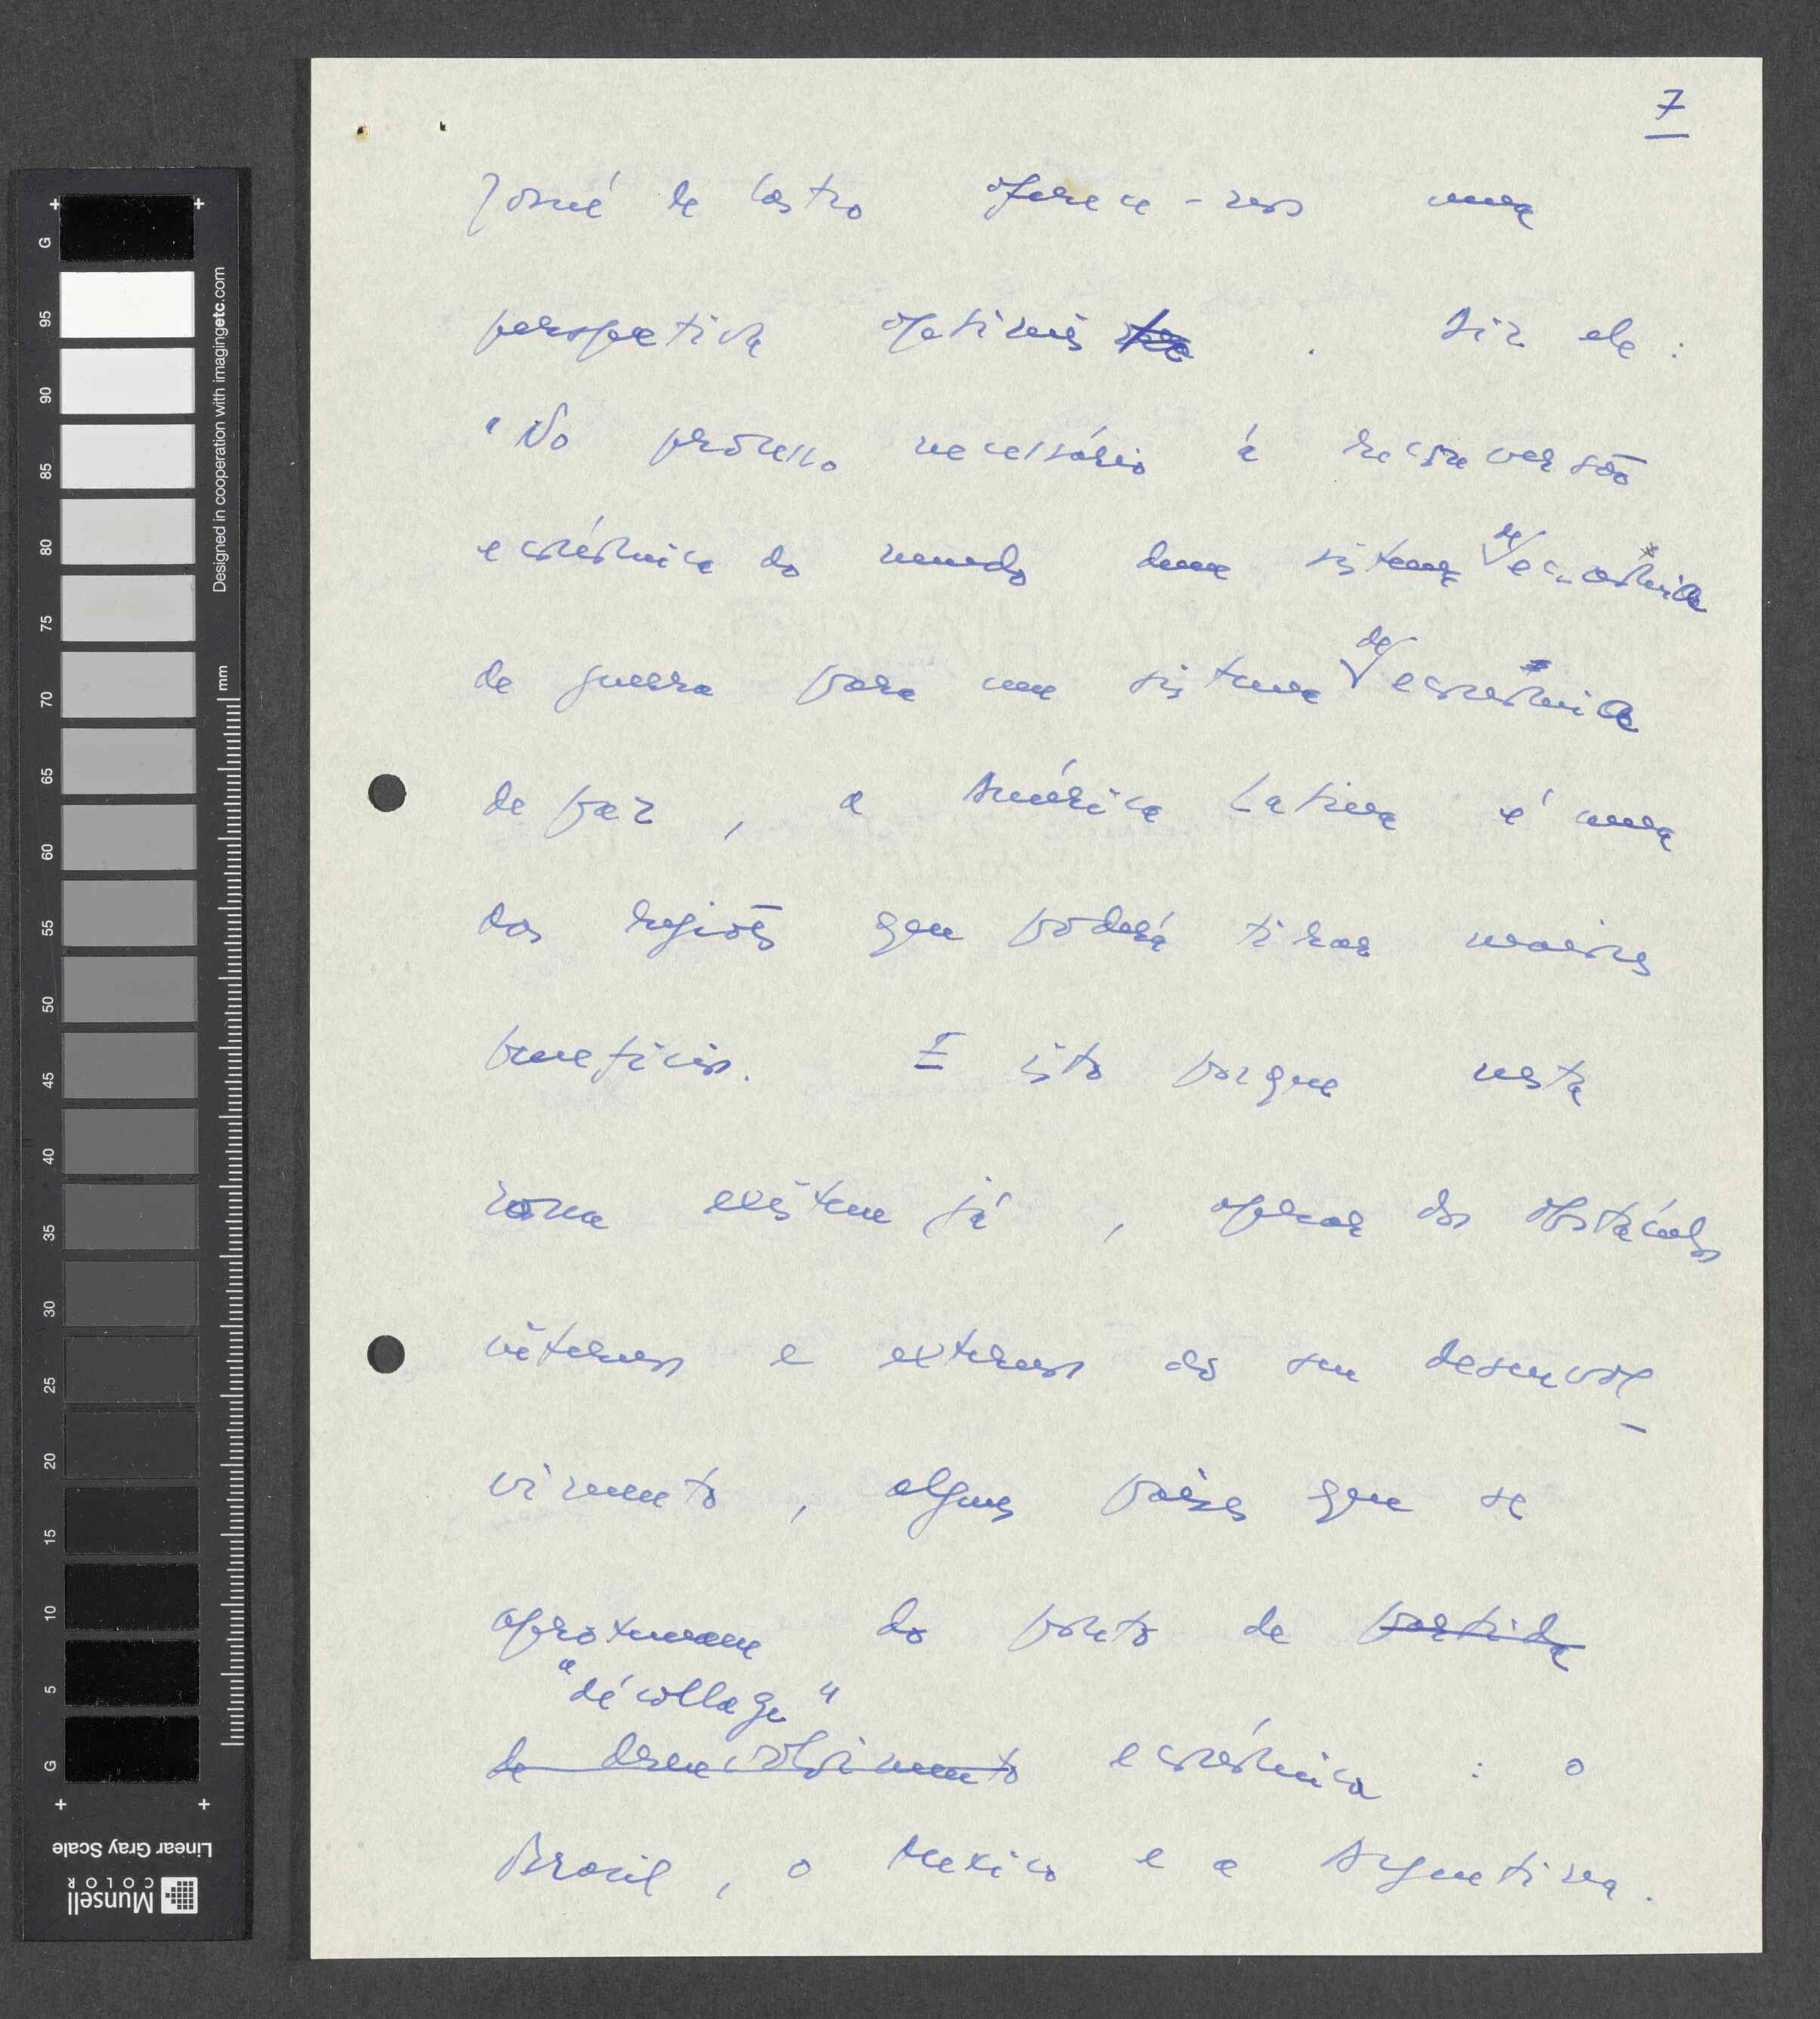 7
Josué de Castro oferece-nos uma
perspectiva optimista. Diz ele:
"No processo necessário à reconversão
económica do mundo dum sistema de economia
de guerra para um sistema de economia
de paz, a América Latina é uma
das regiões que poderá tirar maiores
benefícios. E isto porque nesta
zona existem já, apesar dos obstáculos
internos e externos ao seu desenvol-
vimento, alguns países que se
aproximam do ponto de partida
"décollage"
de desenvolvimento económica : o
Brasil, o Mexico e a Argentina.
G 95 90 85 80 75 70 65 60 55 50 45 40 35 30 25 20 15 10 5 G
Designed in cooperation with imagingetc.com
mm
Linear Gray Scale
Munsell
COLOR